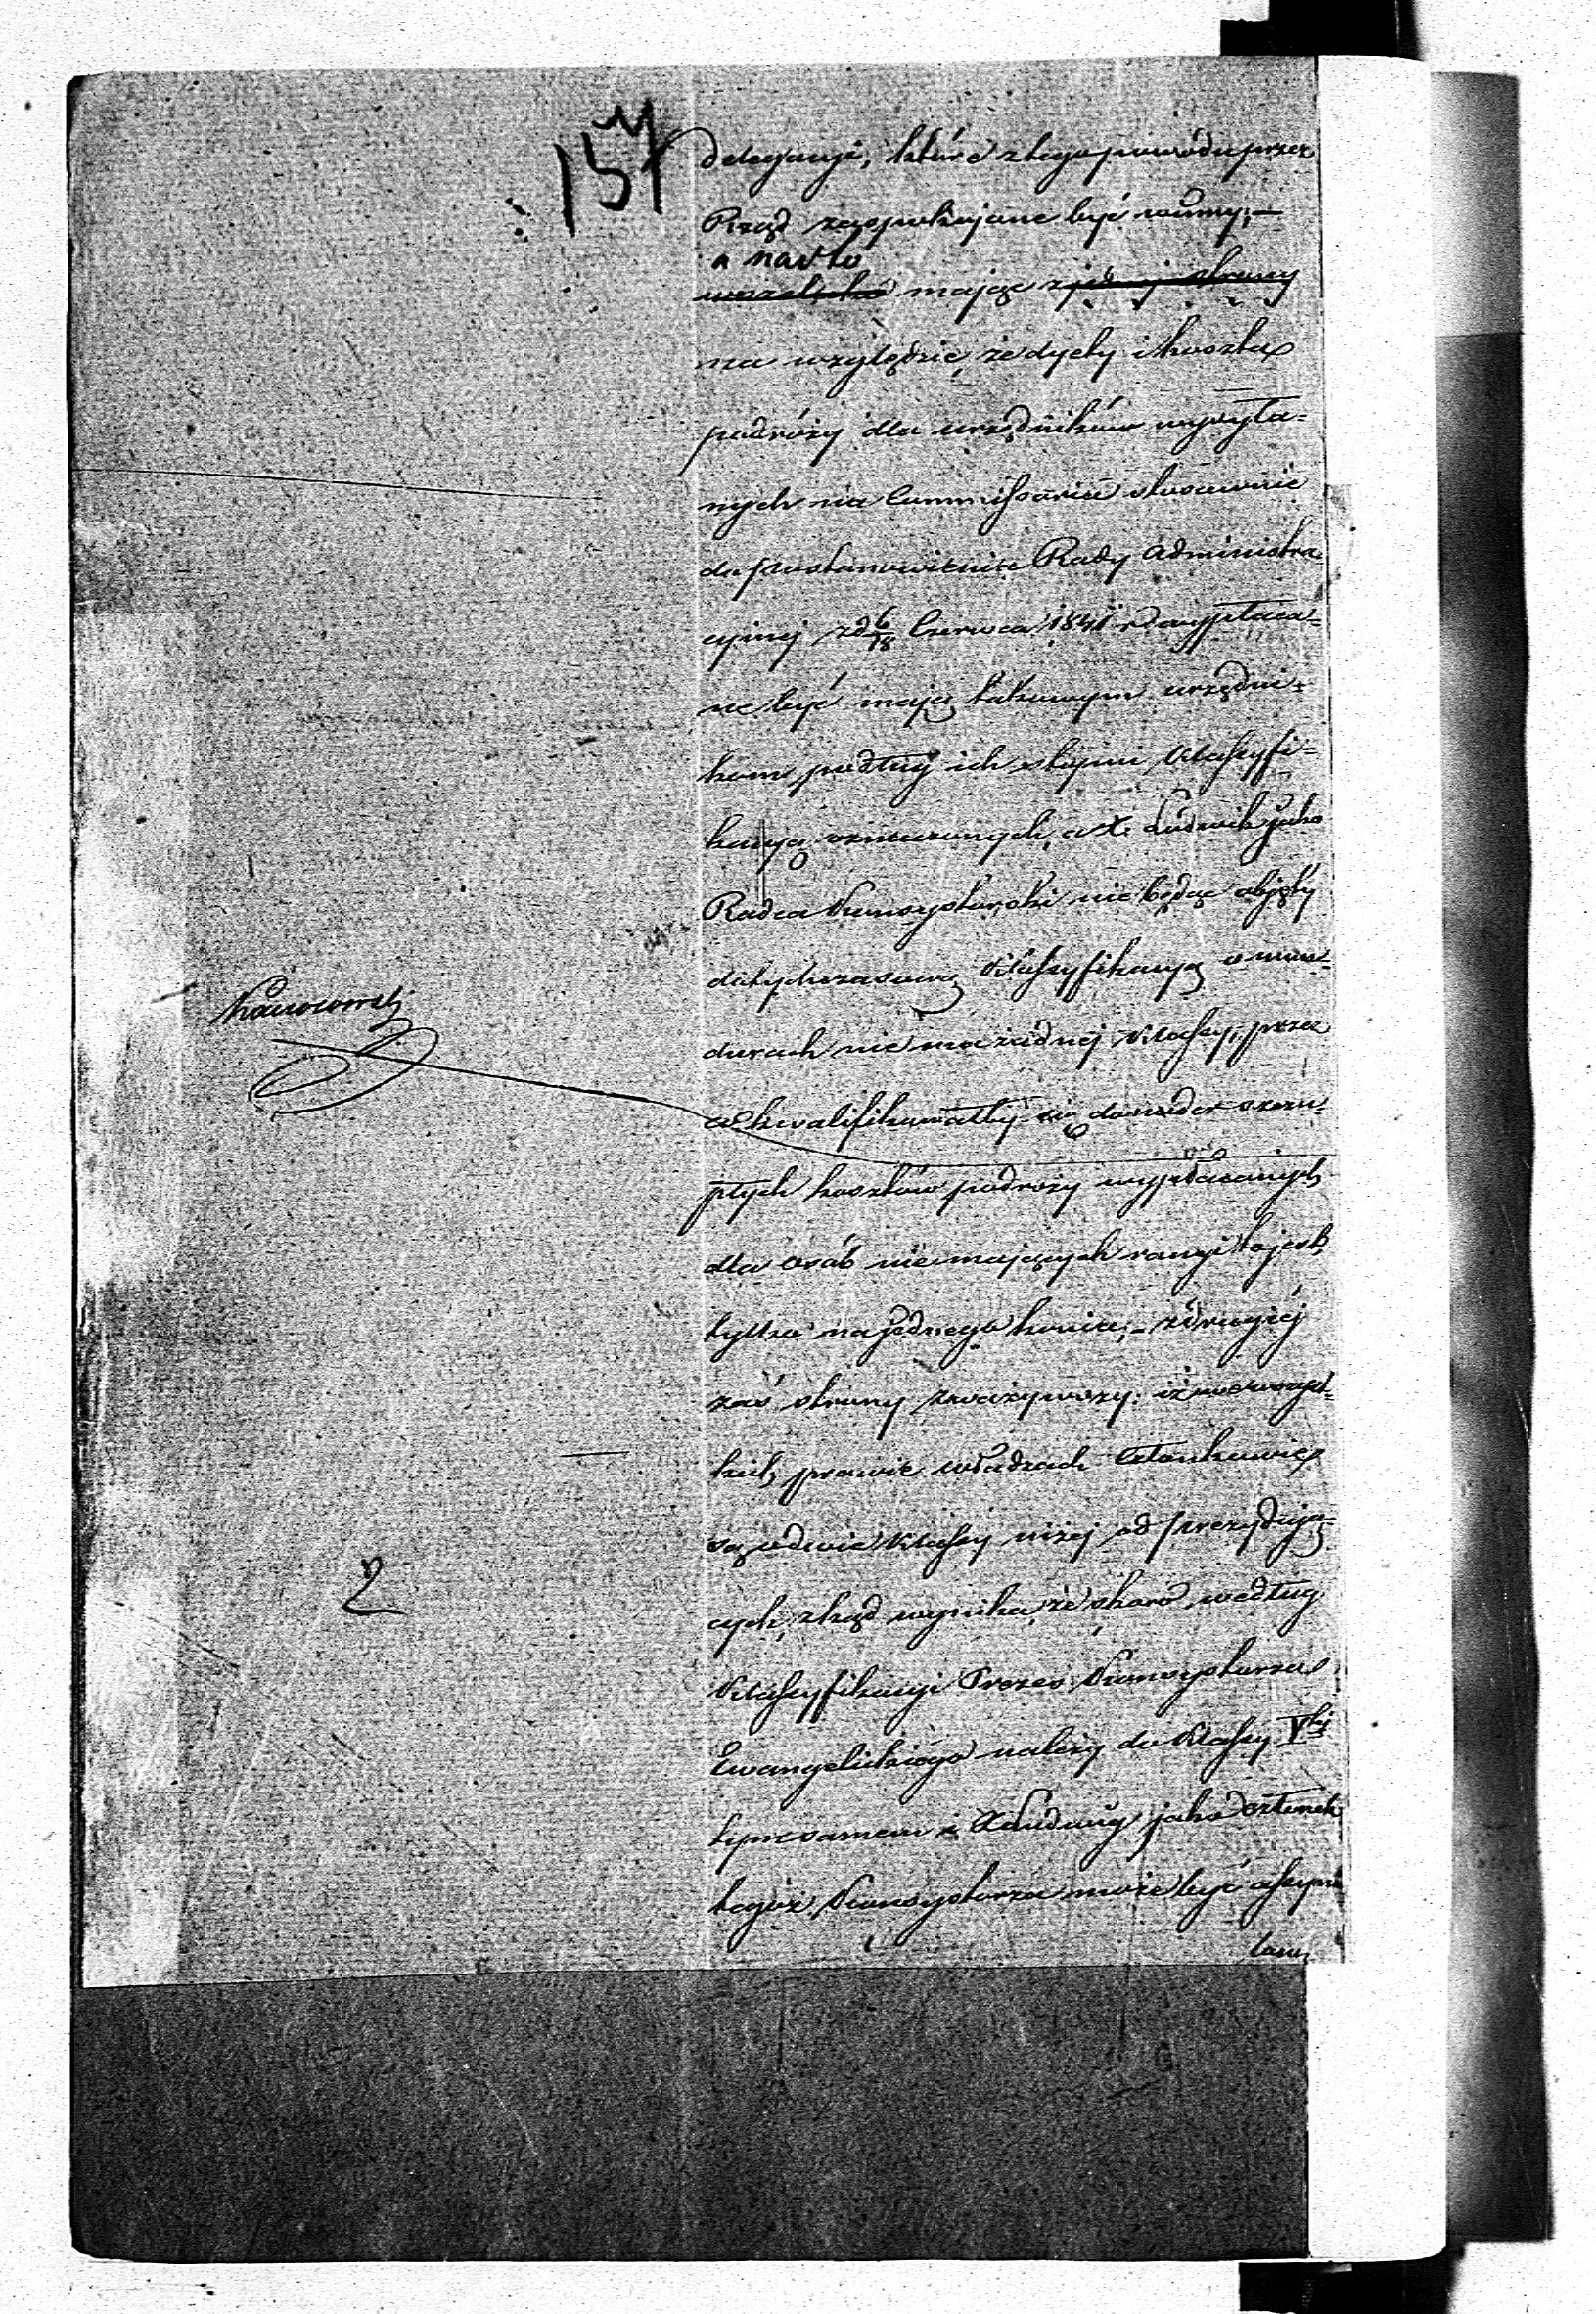 157
delegacyi, które z tego powodu przez
Rząd zaspokajane być winny; —
a nadto
wszelako mając z jednej strony
na względzie, że dyety i koszta
podróży dla urzędników wysyła=
nych na Commissarie stosownie
do postanowienia Rady Administra
cyjnej z d 6/18 Czerwca 1841 r wypłaca=
ne być mają takowym urzędni=
kom podług ich stopni Klassyfi=
kacyą oznaczonych, a X. Ludwik jako
Radca Konsystorski nie będąc objęty
dotychczasową Klassyfikacyą o mun=
durach nie ma żadnej Klassy, przez
co kwalifikowałby się do nader szczu=
płych kosztów podroży wypłacanych
dla osób niemających rangi to jest,
tylko na jednego konia; — z drugiéj
zaś strony zważywszy: iż we wszyst=
kich prawie władzach Członkowie
są o dwie Klassy niżej od prezydują=
cych, zkąd wynika, że skoro według
Klassyfikacyi Prezes Konsystorza
Ewangelickiego należy do Klassy Vtej
tym samem i X Ludwig jako Członek
tegoż Konsystorza może być assymi
lowa
2